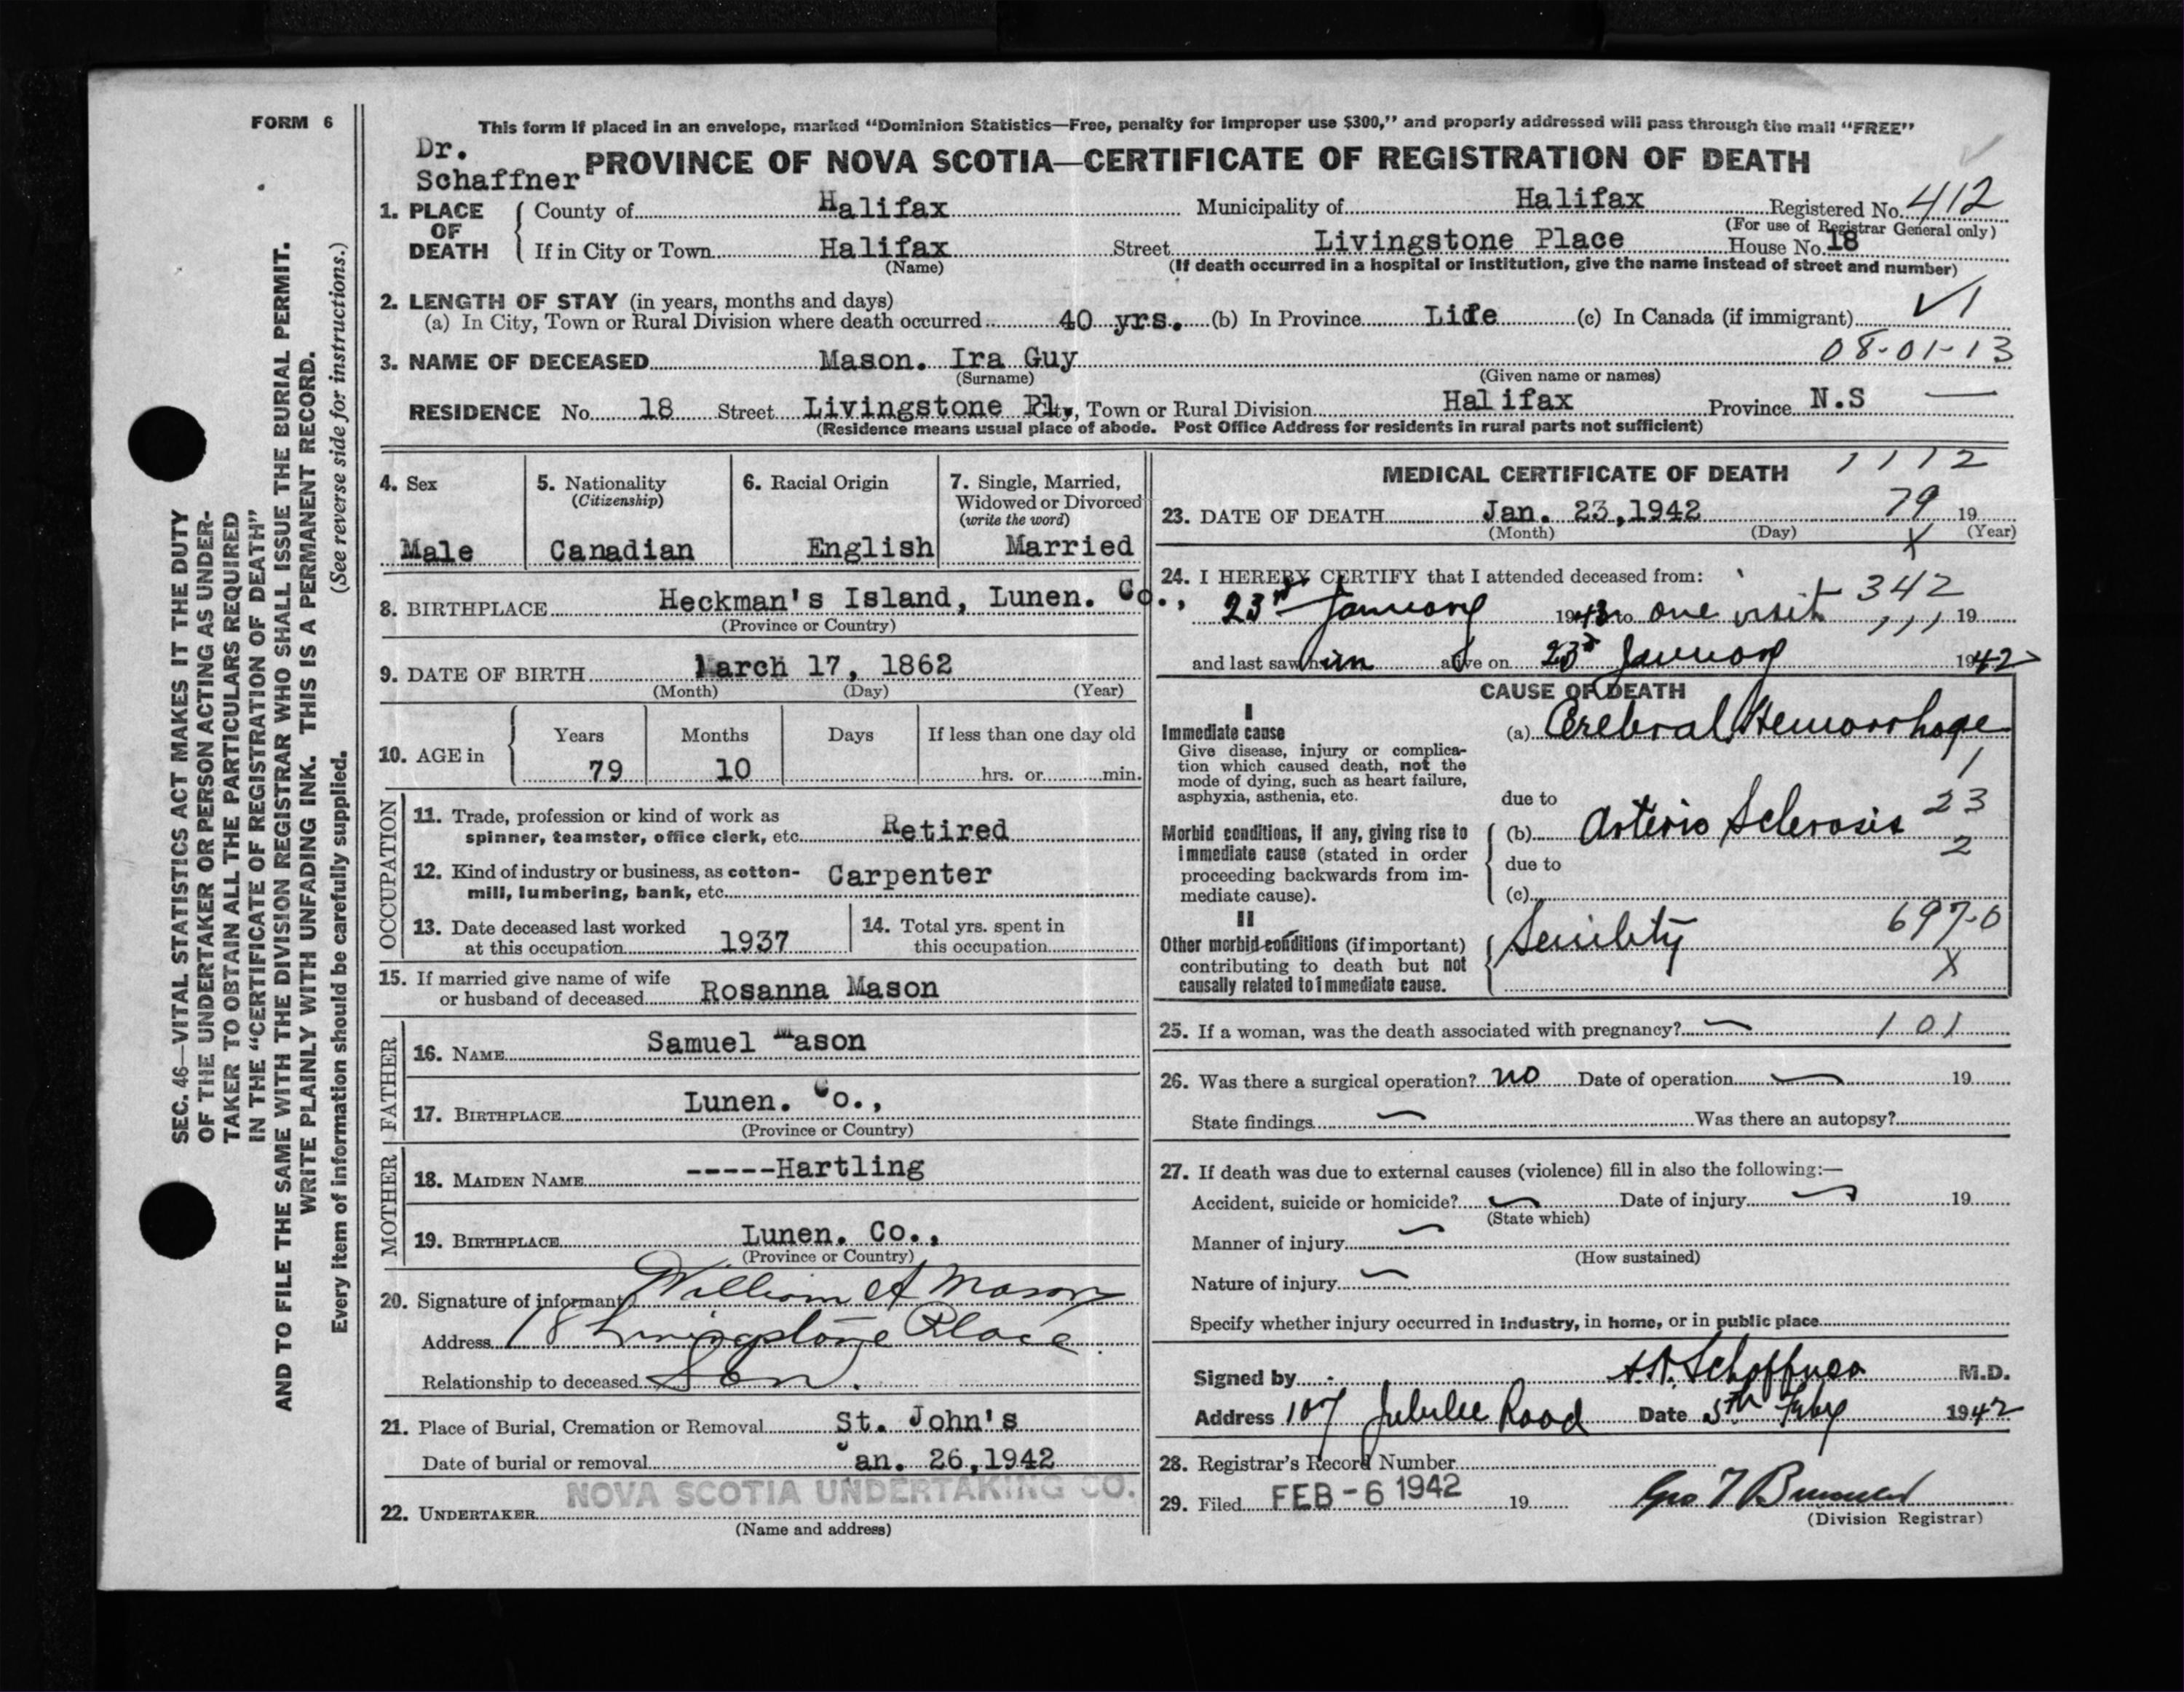 FORM 6
This form if placed in an envelope, marked “Dominion Statistics—Free, penalty for improper use $300,” and properly addressed will pass through the mail “FREE”
Dr.
Schaffner
PROVINCE OF NOVA SCOTIA—CERTIFICATE OF REGISTRATION OF DEATH
1. PLACE OF DEATH
County of Halifax Municipality of Halifax Registered No. 412
(For use of Registrar General only)
If in City or Town Halifax Street Livingstone Place House No. 18
(Name) (If death occurred in a hospital or institution, give the name instead of street and number)
2. LENGTH OF STAY (in years, months and days)
(a) In City, Town or Rural Division where death occurred 40 yrs. (b) In Province Life (c) In Canada (if immigrant) √1
08-01-13
3. NAME OF DECEASED Mason. Ira Guy
(Surname) (Given name or names)
RESIDENCE No. 18 Street Livingstone Pl., City, Town or Rural Division Halifax Province N.S —
(Residence means usual place of abode. Post Office Address for residents in rural parts not sufficient)
4. Sex
Male
5. Nationality
(Citizenship)
Canadian
6. Racial Origin
English
7. Single, Married,
Widowed or Divorced
(write the word)
Married
8. BIRTHPLACE Heckman's Island, Lunen. Co.,
(Province or Country)
9. DATE OF BIRTH March 17, 1862
(Month) (Day) (Year)
10. AGE in
Years Months Days If less than one day old
79 10 hrs. or min.
OCCUPATION
11. Trade, profession or kind of work as
spinner, teamster, office clerk, etc. Retired
12. Kind of industry or business, as cotton-
mill, lumbering, bank, etc. Carpenter
13. Date deceased last worked
at this occupation 1937
14. Total yrs. spent in
this occupation
15. If married give name of wife
or husband of deceased Rosanna Mason
FATHER
16. NAME Samuel Mason
17. BIRTHPLACE Lunen. Co.,
(Province or Country)
MOTHER
18. MAIDEN NAME -----Hartling
19. BIRTHPLACE Lunen. Co.,
(Province or Country)
20. Signature of informant William A Mason
Address 18 Livingstone Place
Relationship to deceased Son.
21. Place of Burial, Cremation or Removal St. John's
Date of burial or removal Jan. 26,1942
NOVA SCOTIA UNDERTAKING CO.
22. UNDERTAKER
(Name and address)
MEDICAL CERTIFICATE OF DEATH 1112
23. DATE OF DEATH Jan. 23,1942 79 19
(Month) (Day) X (Year)
24. I HEREBY CERTIFY that I attended deceased from: 342
23rd January 1942 to one visit 111 19
and last saw him alive on 23rd January 1942
CAUSE OF DEATH
I
Immediate cause (a) Cerebral Hemorrhage
Give disease, injury or complica-
tion which caused death, not the
mode of dying, such as heart failure,
asphyxia, asthenia, etc.
1
due to
23
Morbid conditions, if any, giving rise to
immediate cause (stated in order
proceeding backwards from im-
mediate cause).
(b) Arterio Sclerosis
2
due to
(c)
II
Other morbid conditions (if important)
contributing to death but not
causally related to immediate cause.
Senility 697-0
X
25. If a woman, was the death associated with pregnancy? — 101
26. Was there a surgical operation? no Date of operation — 19
State findings — Was there an autopsy?
27. If death was due to external causes (violence) fill in also the following:—
Accident, suicide or homicide? — Date of injury — 19
(State which)
Manner of injury —
(How sustained)
Nature of injury —
Specify whether injury occurred in industry, in home, or in public place
Signed by Schaffner M.D.
Address 107 Jubilee Road Date 5th Feby 1942
28. Registrar's Record Number
29. Filed FEB -6 1942 19
(Division Registrar)
SEC. 46—VITAL STATISTICS ACT MAKES IT THE DUTY
OF THE UNDERTAKER OR PERSON ACTING AS UNDER-
TAKER TO OBTAIN ALL THE PARTICULARS REQUIRED
IN THE “CERTIFICATE OF REGISTRATION OF DEATH”
AND TO FILE THE SAME WITH THE DIVISION REGISTRAR WHO SHALL ISSUE THE BURIAL PERMIT.
WRITE PLAINLY WITH UNFADING INK. THIS IS A PERMANENT RECORD.
Every item of information should be carefully supplied. (See reverse side for instructions.)